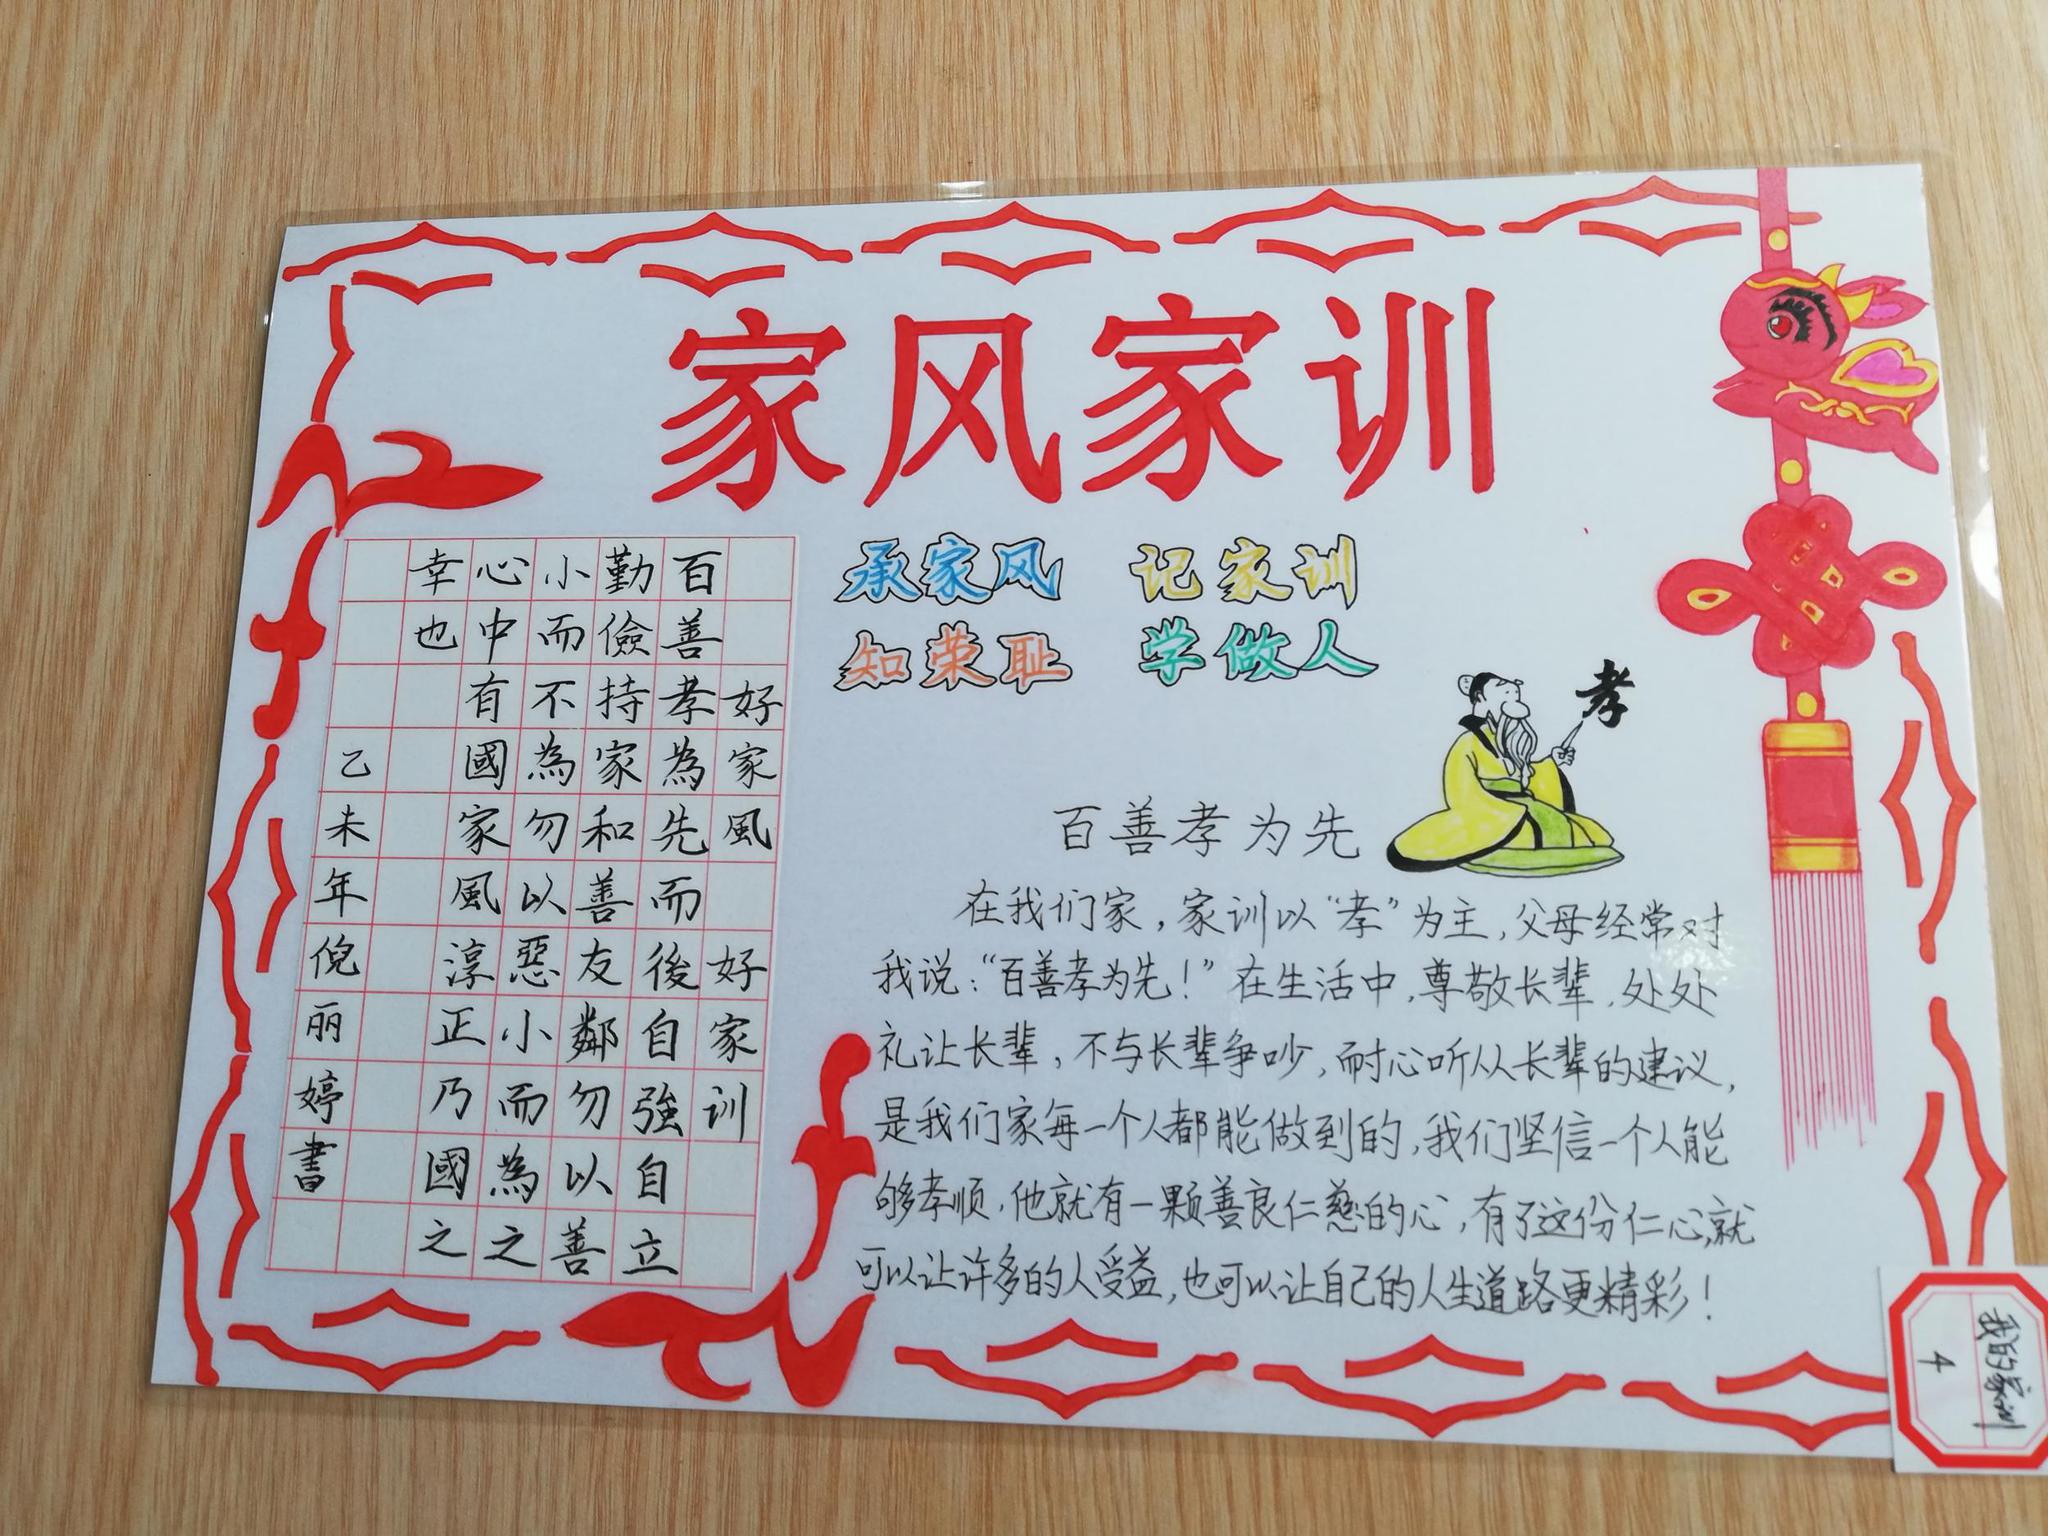 家风家训
承家风 记家训
知荣耻 学做人
好家風 好家训
百善孝為先而後自強自立
勤儉持家和善友鄰勿以善
小而不為勿以惡小而為之
心中有國家風淳正乃國之
幸也
乙未年倪丽婷書
孝
百善孝为先
在我们家，家训以“孝”为主，父母经常对
我说：“百善孝为先！”在生活中，尊敬长辈，处处
礼让长辈，不与长辈争吵，耐心听从长辈的建议，
是我们家每一个人都能做到的，我们坚信一个人能
够孝顺，他就有一颗善良仁慈的心，有了这份仁心，就
可以让许多的人受益，也可以让自己的人生道路更精彩！
我的家训
4